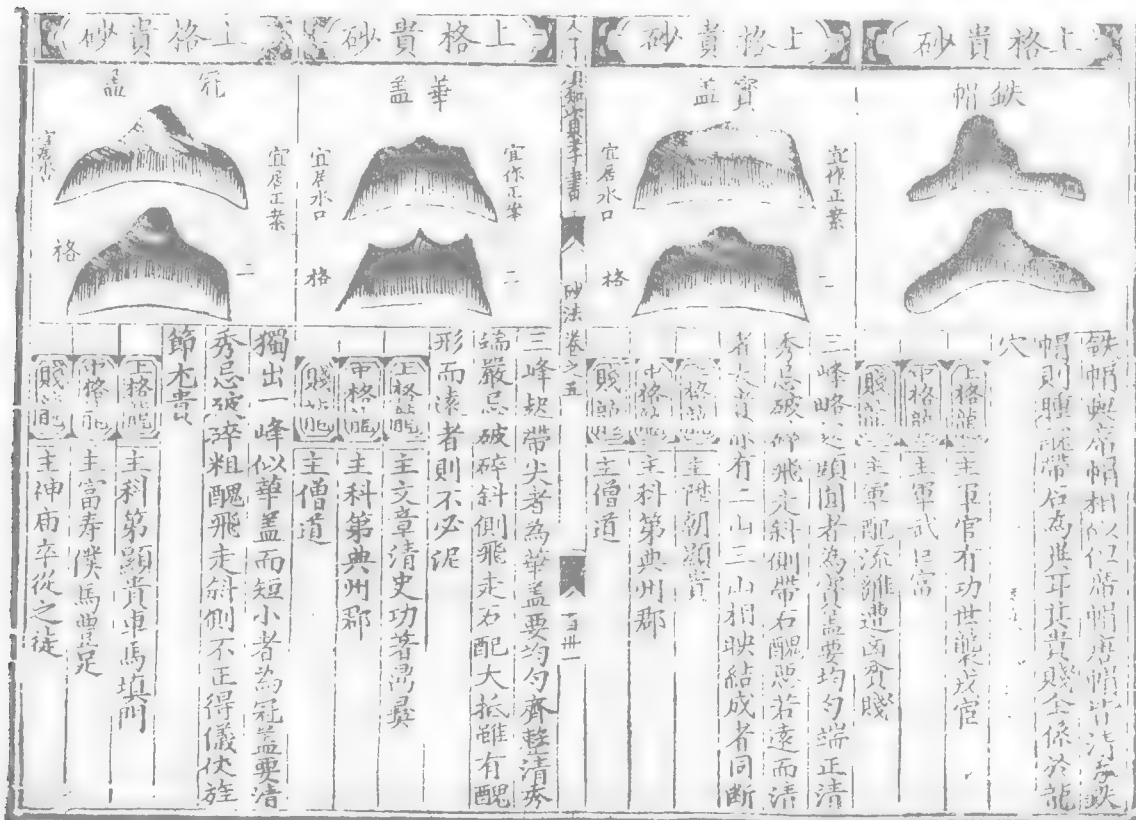 上格貴砂
鉄帽
鉄帽與席帽相似但席帽唐帽皆清秀鉄
帽則 帶石為異耳其貴賤全係於龍
穴
上格龍
主軍官有功世襲武官
中格龍
主軍武起富
賤龍
主軍配流離遭凶夭賤
上格貴砂
寶盖
宜作正案
宜居水口
二
格
三峰略起頭圓者為寶盖要均勻端正清
秀忌破碎飛走斜側帶石醜惡若遠而清
者 小有二山三山相映結成者同斷
上格龍
主陞朝顯貴
中格龍
主科第典州郡
賤龍
主僧道
人子須知資孝書
砂法卷之五
百卅一
上格貴砂
華盖
宜作正案
宜居水口
二
格
三峰起帶尖者為華盖要均勻齊整清秀
端嚴忌破碎斜側飛走石配大抵雖有醜
形而遠者則不必泥
上格龍
主文章清史功著鼎彝
中格龍
主科第典州郡
賤龍
主僧道
上格貴砂
冠盖
宜居正案
宜居水
二
格
獨出一峰似華盖而短小者為冠盖要清
秀忌破碎粗醜飛走斜側不正得儀伏旌
節尤貴
上格龍
主科第顯貴車馬填門
中格龍
主富寿僕馬豊足
賤龍
主神庙卒從之徒